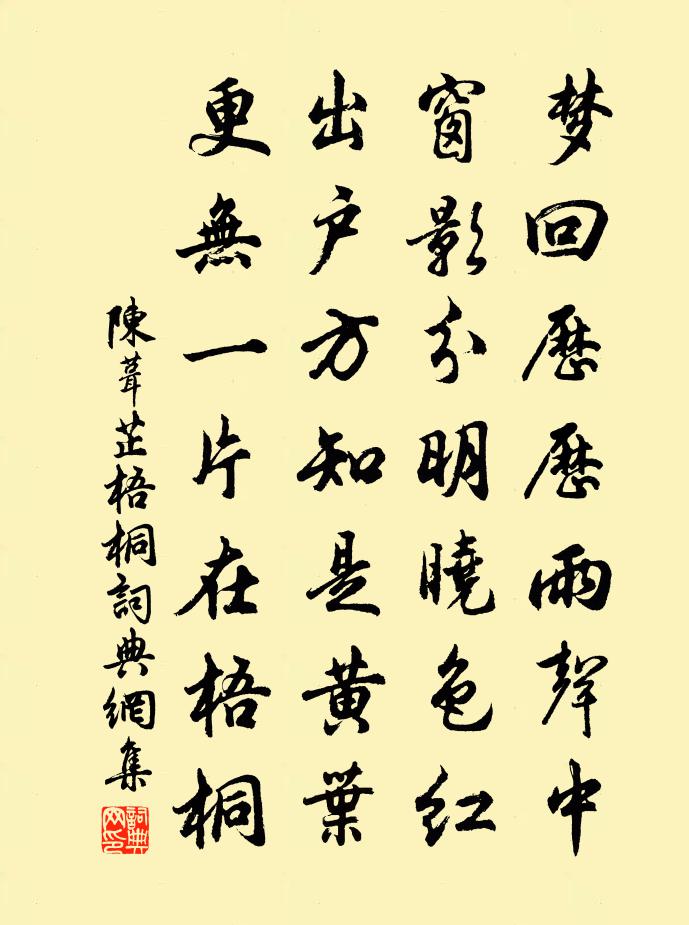 梦回歷歷雨聲中
窗影分明曉色紅
出戶方知是黃葉
更無一片在梧桐
陳葺芷梧桐詞典網集
詞典网印